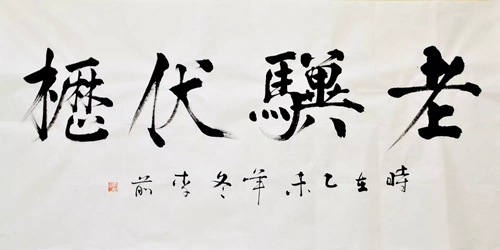 老驥伏櫪
時在乙未年冬李前